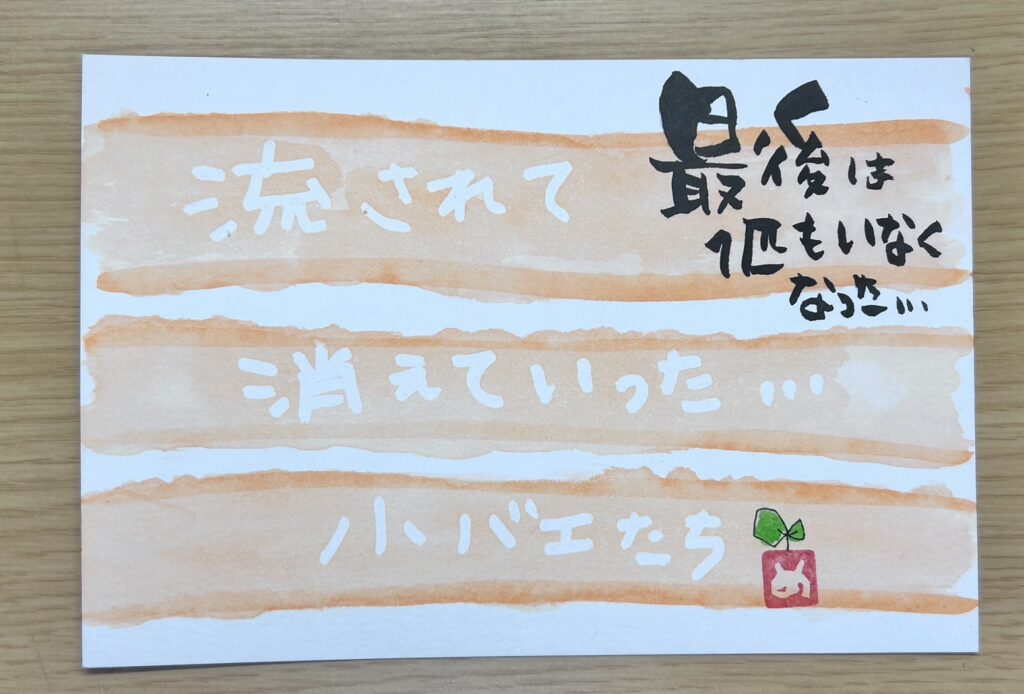 最後は
1匹もいなく
なった…
流されて
消えていった…
小バエたち
め